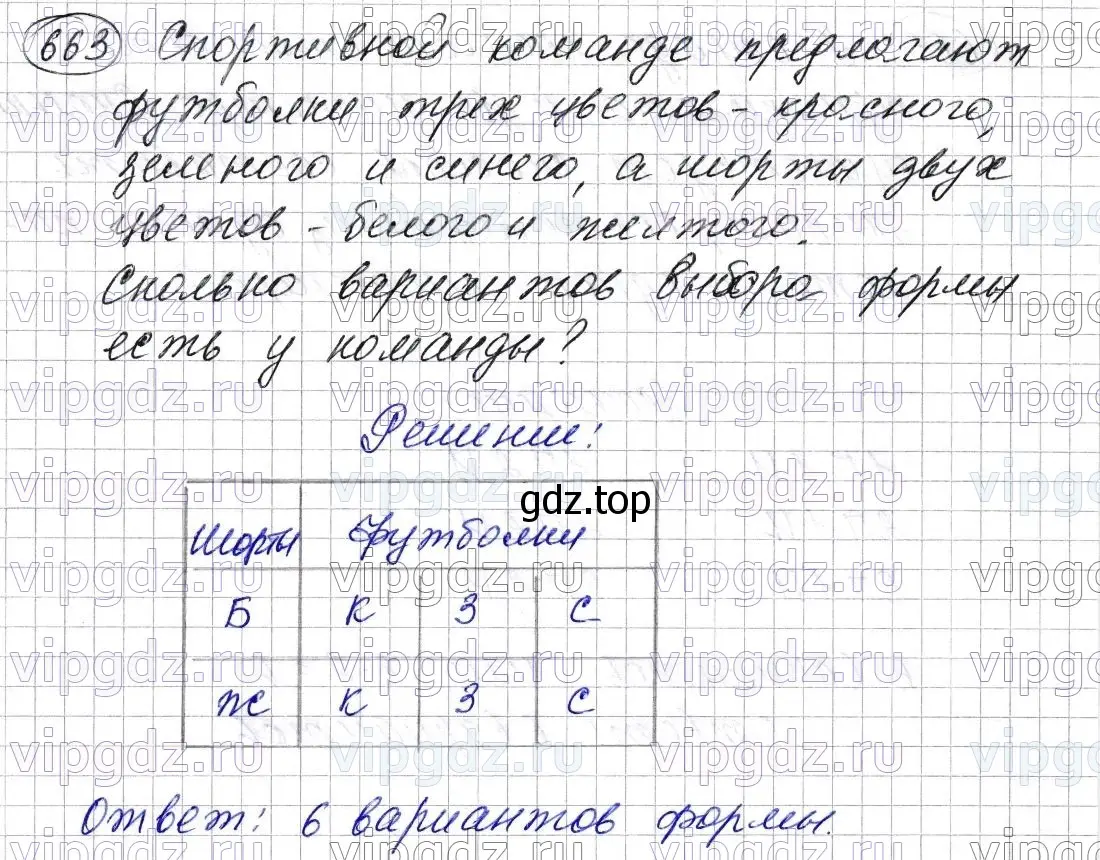 663 Спортивной команде предлагают
футболки трех цветов - красного,
зеленого и синего, а шорты двух
цветов - белого и желтого.
Сколько вариантов выбора формы
есть у команды?
Решение:
gdz.top
Шорты Футболки
Б К З С
Ж К З С
Ответ: 6 вариантов формы.
vipgdz.ru